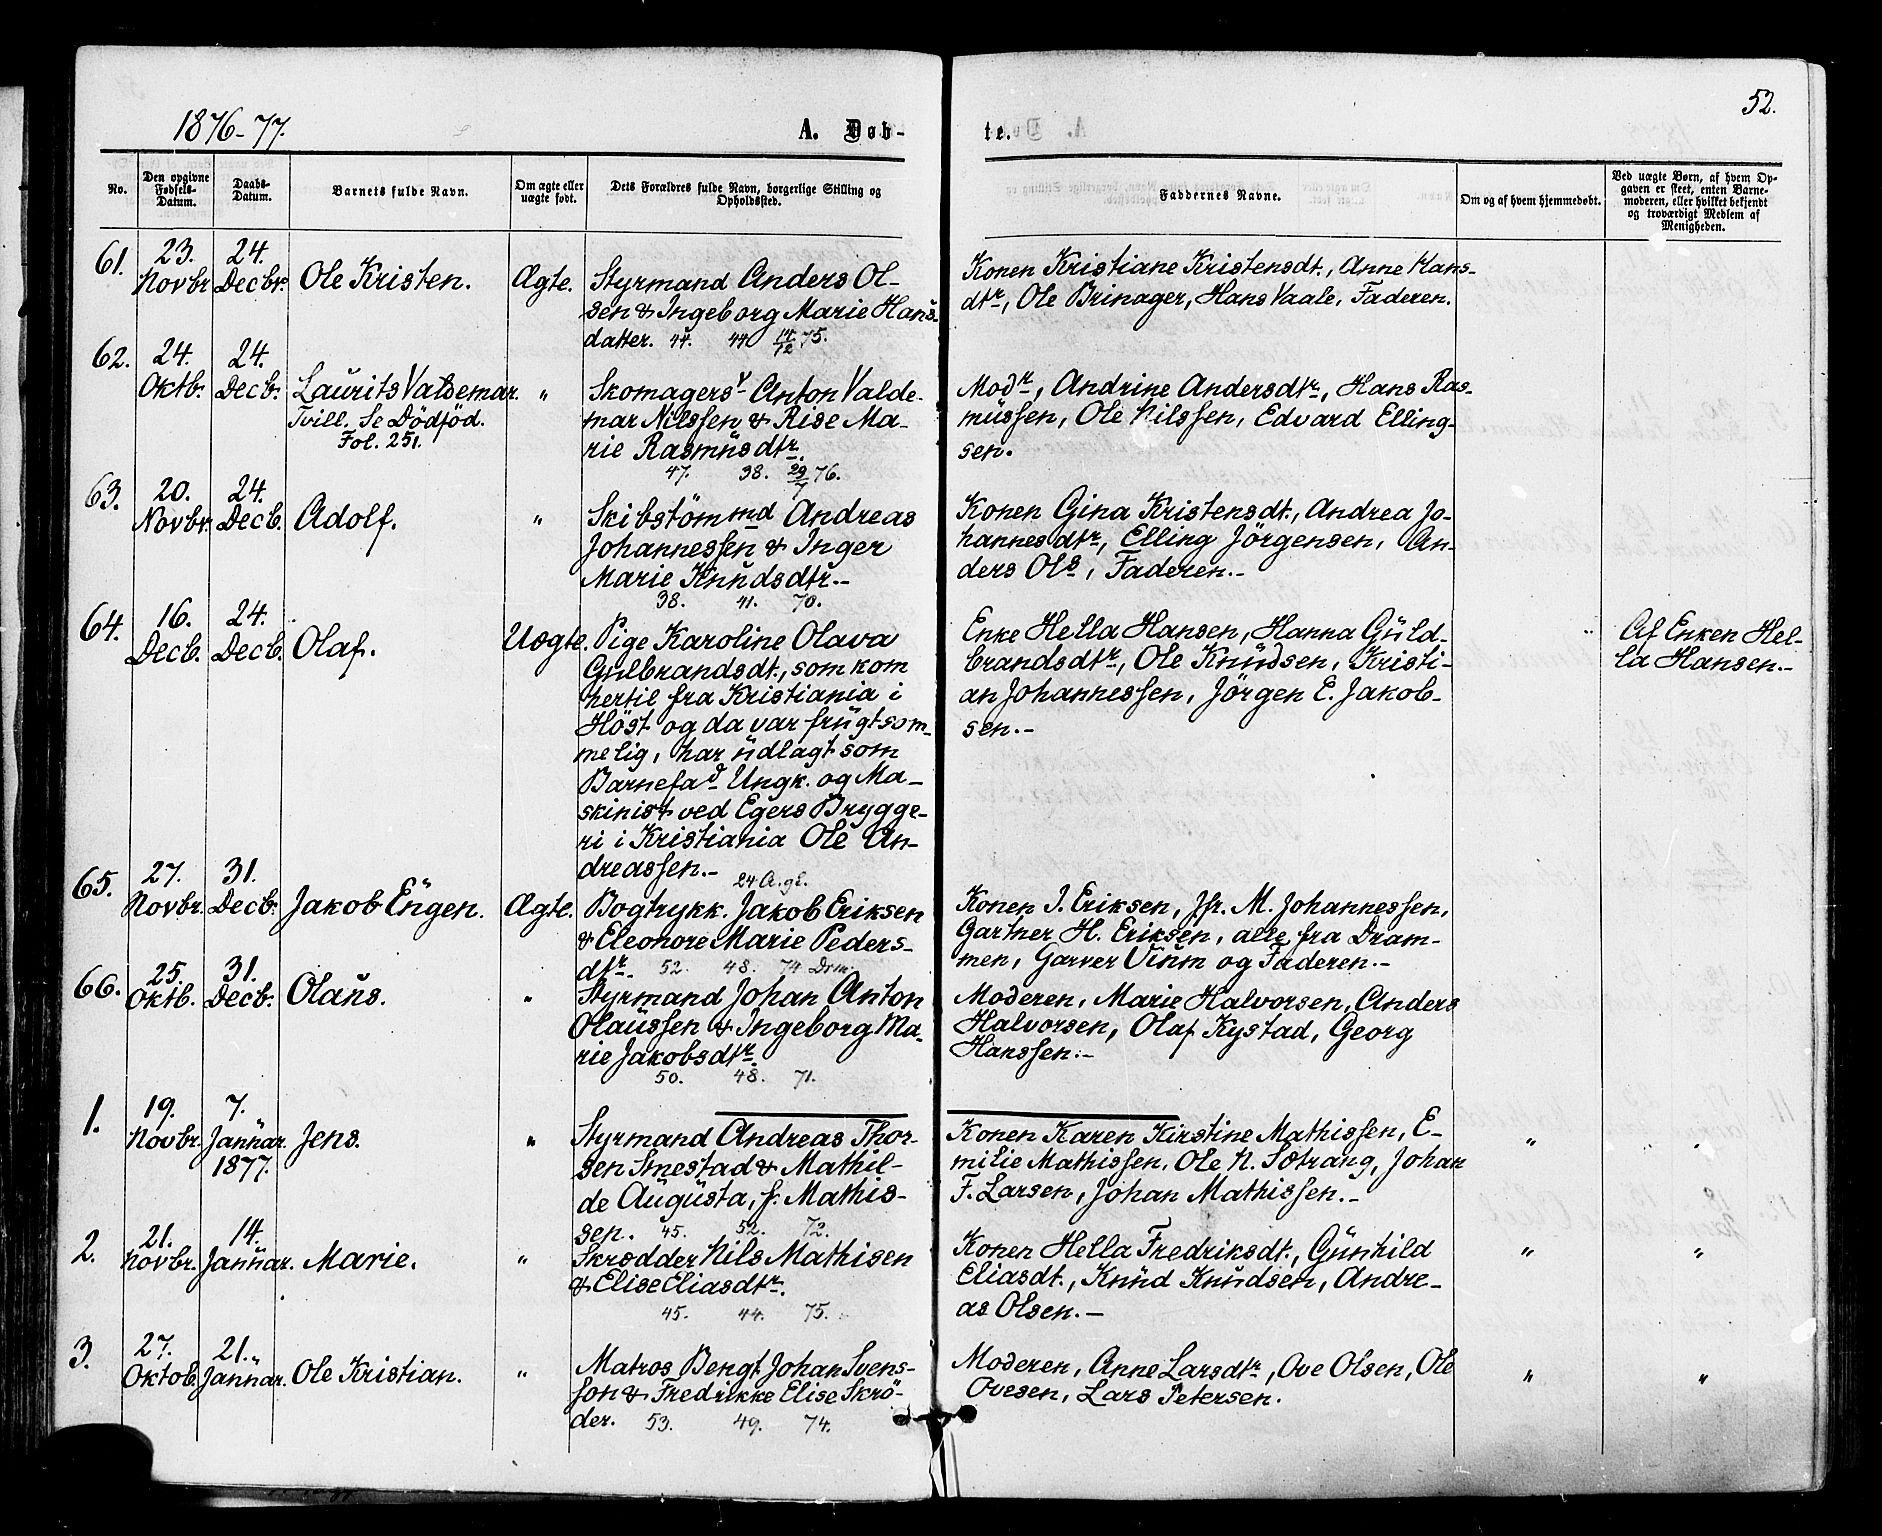 1876-77.
A. Døb-
te.
52.
No.
Den opgivne Fødsels-Datum.
Daabs-Datum.
Barnets fulde Navn.
Om ægte eller uægte født.
Dets Forældres fulde Navn, borgerlige Stilling og Opholdssted.
Faddernes Navne.
Om og af hvem hjemmedøbt.
Ved uægte Børn, af hvem Op-
gaven er skeet, enten Barne-
moderen, eller hvilket bekjendt
og troværdigt Medlem af
Menigheden.
61.
23.
Novbr.
24.
Decbr.
Ole Kristen.
Ægte.
Styrmand Anders Ol-
sen & Ingeborg Marie Hans-
datter. 44. 44 14/12 75.
Konen Kristiane Kristensdt., Anne Hans-
dtr, Ole Brinager, Hans Vaale, Faderen.
62.
24.
Oktb.
24.
Decb.
Laurits Valdemar.
Tvill. Se Dödföd.
Fol. 251.
"
Skomagersv Anton Valde-
mar Nilssen & Rise Ma-
rie Rasmusdtr.
47. 38. 29/7 76.
Modr, Andrine Andersdtr, Hans Ras-
mussen, Ole Nilssen, Edvard Elling-
sen.
63.
20.
Novbr.
24.
Decb.
Adolf.
"
Skibstömmd Andreas
Johannessen & Inger
Marie Knudsdtr.-
38. 41. 70.
Konen Gina Kristensdt., Andrea Jo-
hannesdtr, Elling Jörgensen, An-
ders Ols, Faderen.-
64.
16.
Decb.
24.
Decb.
Olaf.
Uægte.
Pige Karoline Olava
Gulbrandsdt., som kom
hertil fra Kristiania i
Höst og da var frugtsom-
melig, har udlagt som
Barnefad Ungk. og Ma-
skinist ved Egers Brygge-
ri i Kristiania Ole An-
dreassen.-
24 A. gl.
Enke Hella Hansen, Hanna Guld-
brandsdtr, Ole Knudsen, Kristi-
an Johannessen, Jörgen E. Jakob-
sen.-
"
Af Enken Hel-
la Hansen.-
65.
27.
Novbr.
31.
Decb.
Jakob Engen.
Ægte.
Bogtrykk. Jakob Eriksen
& Eleonore Marie Peders-
dtr. 52. 48. 74 Drm.
Konen J. Eriksen, Jfr. M. Johannessen,
Gartner H. Eriksen, alle fra Dram-
men, Garver Vinm og Faderen.-
66.
25.
Oktb.
31.
Decb.
Olaus.
"
Styrmand Johan Anton
Olaussen & Ingeborg Ma-
rie Jakobsdtr.
50. 48. 71.
Moderen, Marie Halvorsen, Anders
Halvorsen, Olaf Kystad, Georg
Hanssen.-
1.
19.
Novbr.
7.
Januar.
1877.
Jens.
"
Styrmand Andreas Thor-
sen Smestad & Mathil-
de Augusta, f. Mathis-
sen. 45. 52. 72.
Konen Karen Kirstine Mathissen, E-
milie Mathissen, Ole N. Sætrang, Johan
F. Larsen, Johan Mathissen.-
"
"
2.
21.
Novbr.
14.
Januar.
Marie.
"
Skrædder Nils Mathisen
& Elise Eliasdtr.
45. 44. 75.
Konen Hella Fredriksdt., Gunhild
Eliasdt., Knud Knudsen, Andre-
as Olsen.-
"
"
3.
27.
Oktob.
21.
Januar.
Ole Kristian.
"
Matros Bengt Johan Svens-
son & Fredrikke Elise Skrö-
der. 53. 49. 74.
Moderen, Anne Larsdtr, Ove Olsen, Ole
Ovesen, Lars Petersen.
"
"